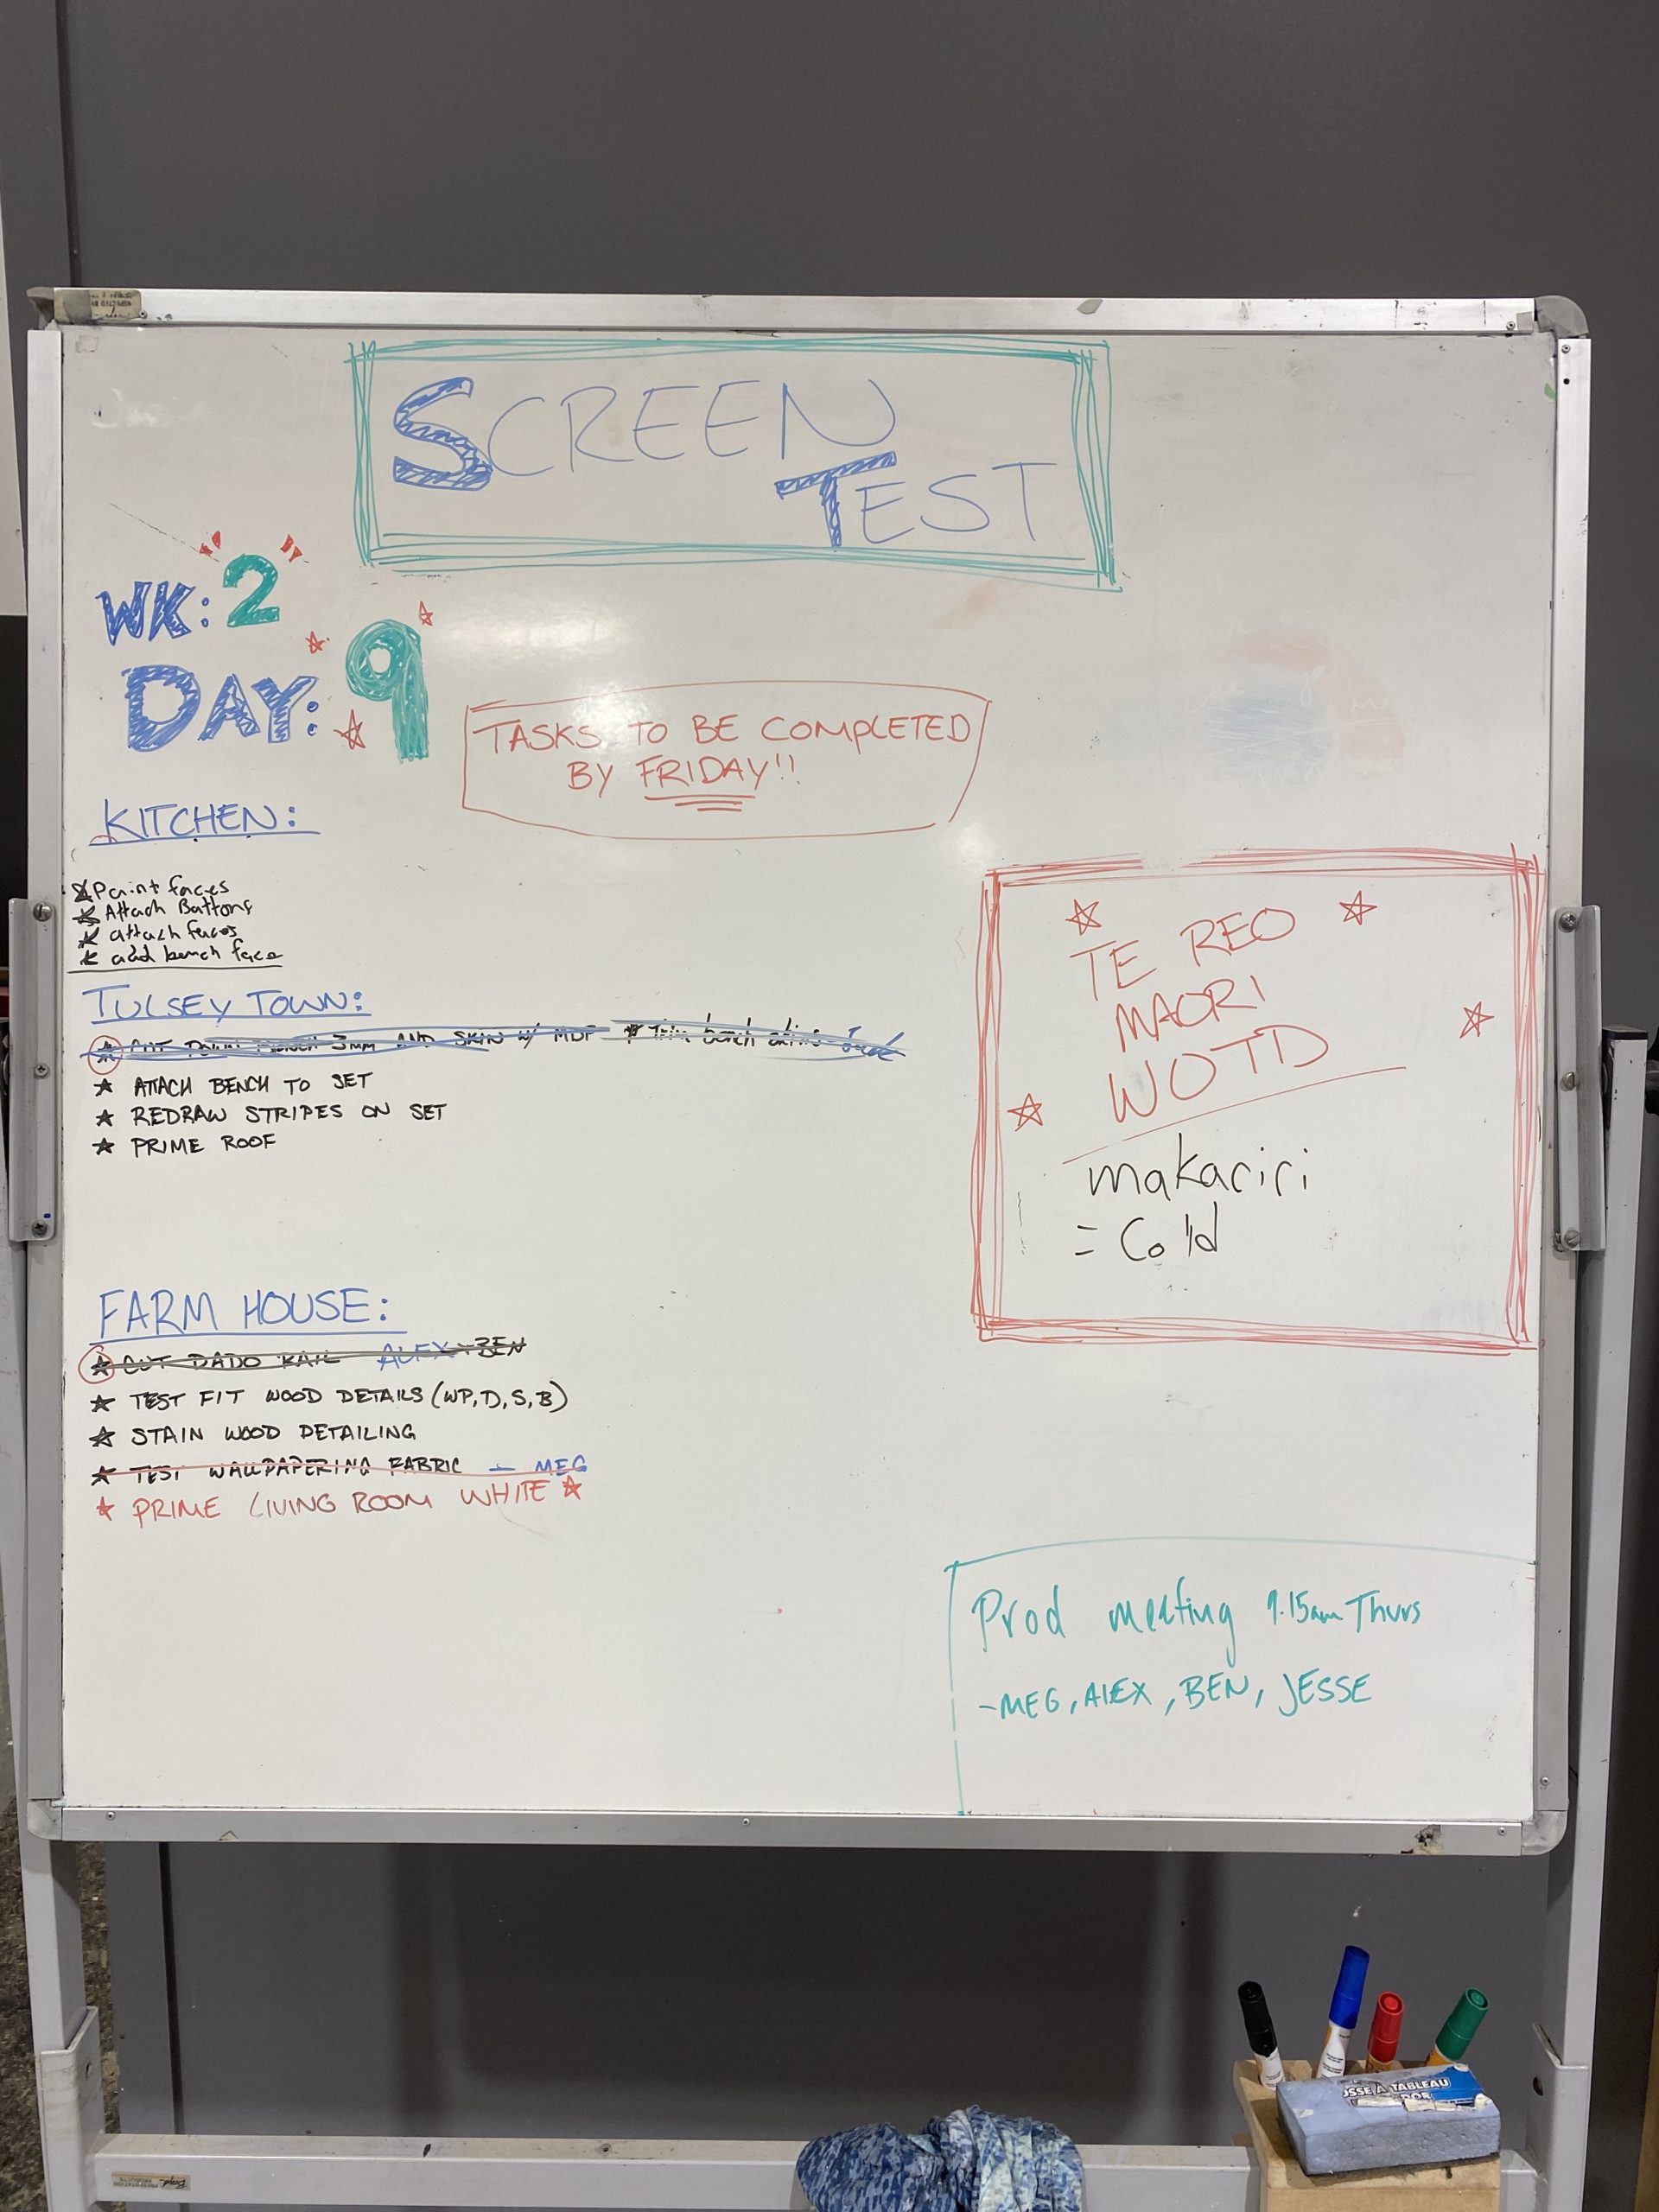 SCREEN
TEST
WK: 2
DAY: 9
TASKS TO BE COMPLETED
BY FRIDAY!!
KITCHEN:
Paint faces
Attach Battons
attach faces
add bench face
TULSEY TOWN:
CUT DOWN BENCH 3mm AND SKIN W/ MDF ★ Trim bench
★ ATTACH BENCH TO SET
★ REDRAW STRIPES ON SET
★ PRIME ROOF
FARM HOUSE:
★ CUT DADO RAIL ALEX + BEN
★ TEST FIT WOOD DETAILS (WP, D, S, B)
★ STAIN WOOD DETAILING
★ TEST WALLPAPERING FABRIC — MEG
★ PRIME LIVING ROOM WHITE ★
TE REO
MAORI
WOTD
makariri
= Cold
Prod meeting 9.15am Thurs
- MEG, ALEX, BEN, JESSE